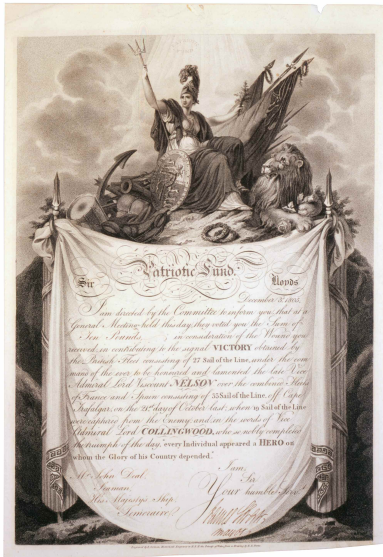 Patriotic Fund.
Sir Lloyds
December 3, 1805.
I am directed by the Committee to inform you, that at a
General Meeting held this day, they voted you the Sum of
Ten Pounds in consideration of the Wound you
received, in contributing to the signal VICTORY obtained by
the British Fleet consisting of 27 Sail of the Line, under the com
mand of the ever to be honored and lamented the late Vice
Admiral Lord Viscount NELSON over the combined Fleets
of France and Spain consisting of 33 Sail of the Line, off Cape
Trafalgar, on the 21st day of October last; when 19 Sail of the Line
were captured from the Enemy, and in the words of Vice
Admiral Lord COLLINGWOOD, who so nobly completed
the triumph of the day, "every Individual appeared a HERO on
whom the Glory of his Country depended."
I am,
Mr. John Deal, Sir
Seaman, Your humble Serv.t
His Majestys Ship
Temeraire